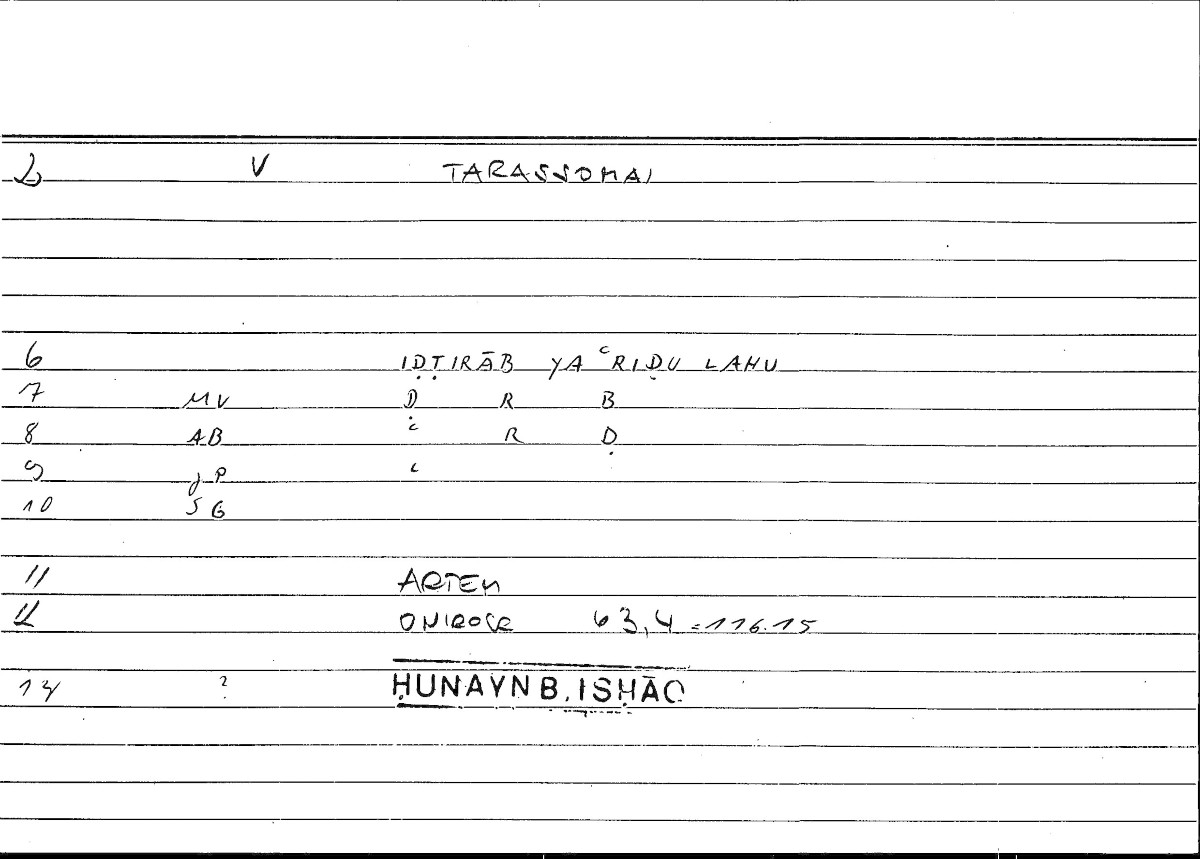 2 V TARASSOMAI
6 IḌṬIRĀB YAʿRIḌU LAHU
7 MV Ḍ R B
8 AB ʿ R Ḍ
9 JP ʿ
10 SG
11 ARTEM
12 ONIROCR 63,4 = 116.15
13 ? ḤUNAYN B. ISḤĀQ